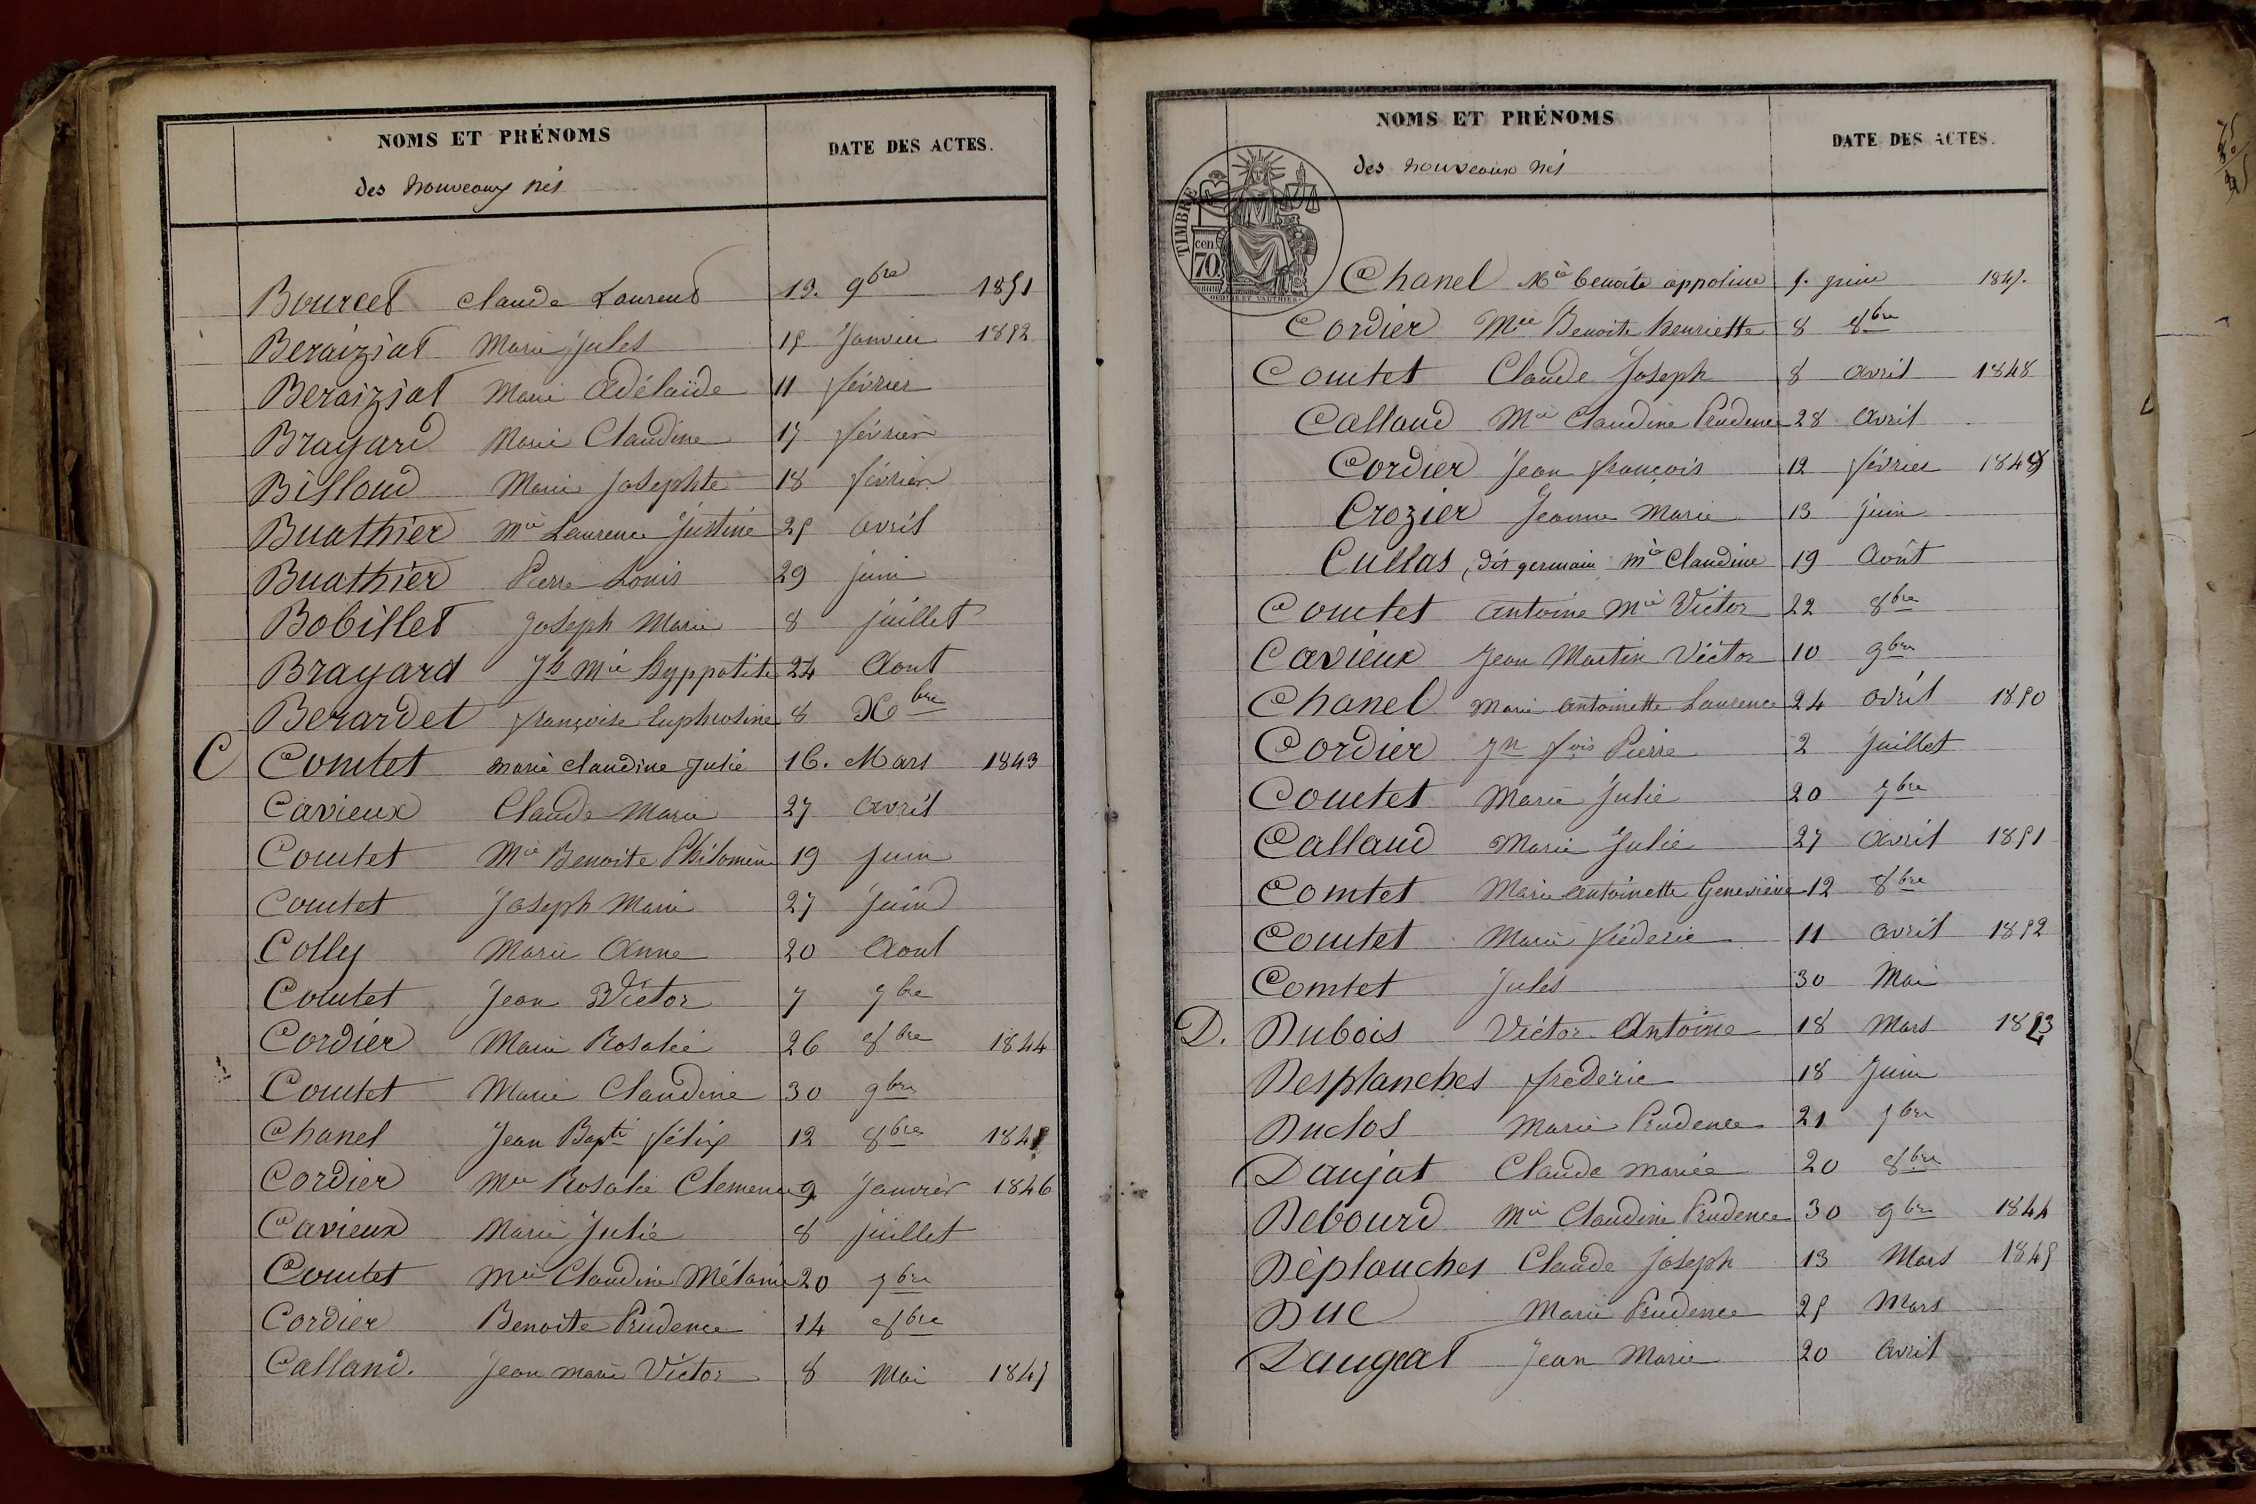 NOMS ET PRÉNOMS
DATE DES ACTES.
des nouveaux nés
Bourcet Claude Laurent 19. 9bre 1851
Beraiziat Marie Jules 15 Janvier 1852
Beraiziat Marie Adélaïde 11 février
Brayard Marie Claudine 17 février
Billoud Marie Josephte 18 février
Buathier Mie Laurence Justine 25 avril
Buathier Pierre Louis 29 juin
Bobillet Joseph Marie 8 juillet
Brayard Jh Mie hyppolite 24 Aout
Berardet françoise Euphrosine 8 Xbre
C Comtet Marie Claudine Julie 16. Mars 1843
Cavieux Claude Marie 27 avril
Comtet Mie Benoite Philomène 19 juin
Comtet Joseph Marie 27 juin
Colly Marie Anne 20 Aout
Comtet Jean Victor 7 7bre
Cordier Marie Rosalie 26 8bre 1844
Comtet Marie Claudine 30 9bre
Chanel Jean Bapte félix 12 8bre 1845
Cordier Mie Rosalie Clemence 9 Janvier 1846
Cavieux Marie Julie 8 juillet
Comtet Mie Claudine Mélanie 20 7bre
Cordier Benoite Prudence 14 8bre
Calland. Jean Marie Victor 8 Mai 1847
NOMS ET PRÉNOMS
DATE DES ACTES.
des nouveaux nés
TIMBRE
cen
70
Chanel Mie benoite appoline juin 1847.
Cordier Mie Benoite henriette 8 8bre
Comtet Claude Joseph 8 avril 1848
Calland Mie Claudine Prudence 28 avril
Cordier Jean françois 12 février 1849
Crozier Jeanne Marie 13 juin
Cullas, dit germain Mie Claudine 19 Août
Comtet Antoine Mie Victor 22 8bre
Cavieux Jean Martin Victor 10 9bre
Chanel Marie Antoinette Laurence 24 avril 1850
Cordier Jn fois Pierre 2 Juillet
Comtet Marie Julie 20 7bre
Calland Marie Julie 27 avril 1851
Comtet Marie Antoinette Geneviève 12 8bre
Comtet Marie fréderic 11 avril 1852
Comtet Jules 30 Mai
D. Dubois Victor Antoine 18 Mars
Desplanches frederic 18 Juin
Duclos Marie Prudence 21 7bre
Daujat Claude Marie 20 8bre
Debourd Mie Claudine Prudence 30 9bre 1844
Déplanches Claude Joseph 13 Mars 1845
Duc Marie Prudence 25 Mars
Daugeat Jean Marie 20 avril